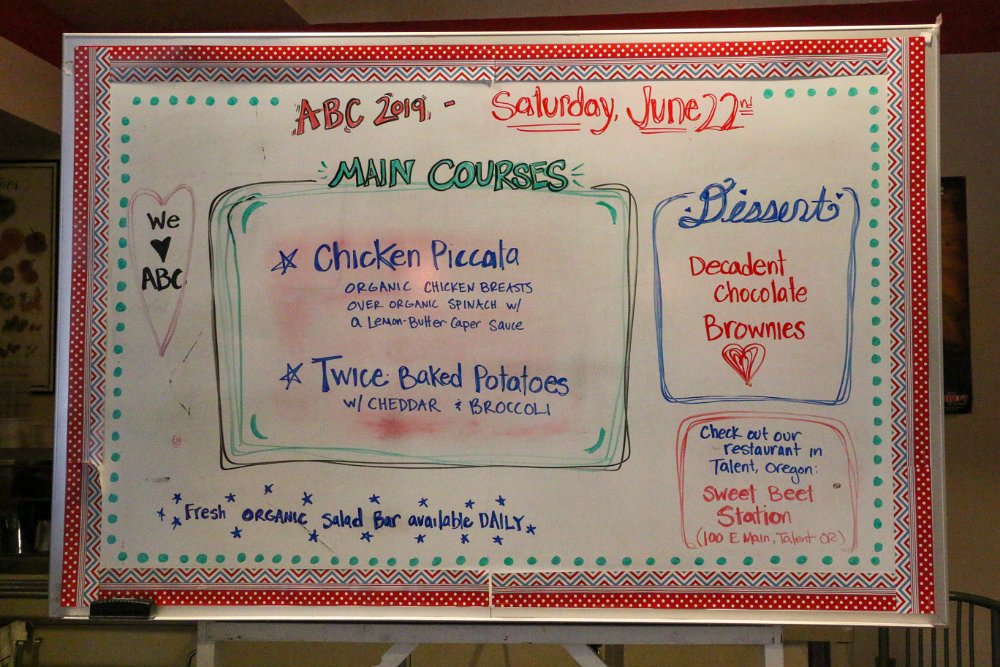 ABC 2019. - Saturday, June 22nd
MAIN COURSES
We
♥
ABC
Chicken Piccata
ORGANIC CHICKEN BREASTS
OVER ORGANIC SPINACH W/
a Lemon-Butter-Caper Sauce
Twice-Baked Potatoes
W/ CHEDDAR & BROCCOLI
Dessert
Decadent
Chocolate
Brownies
Check out our
restaurant in
Talent, Oregon:
Sweet Beet
Station
(100 E Main, Talent OR)
Fresh ORGANIC Salad Bar available DAILY